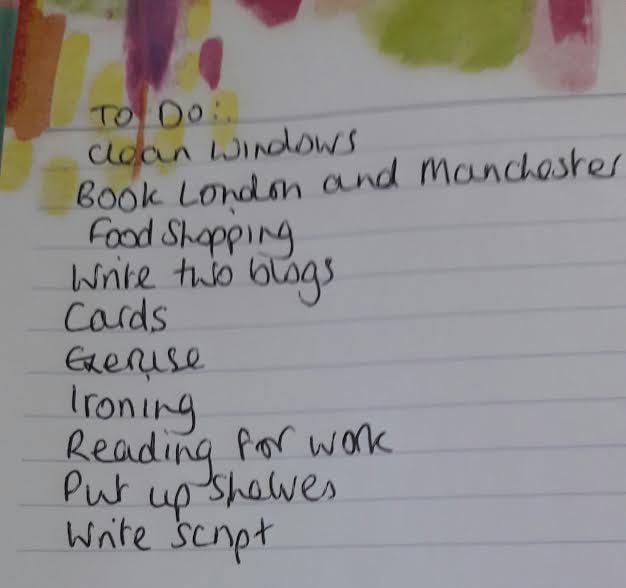 To Do:.
Clean windows
Book London and Manchester
Food Shopping
Write two blogs
Cards
Exercise
Ironing
Reading for work
Put up shelves
Write script